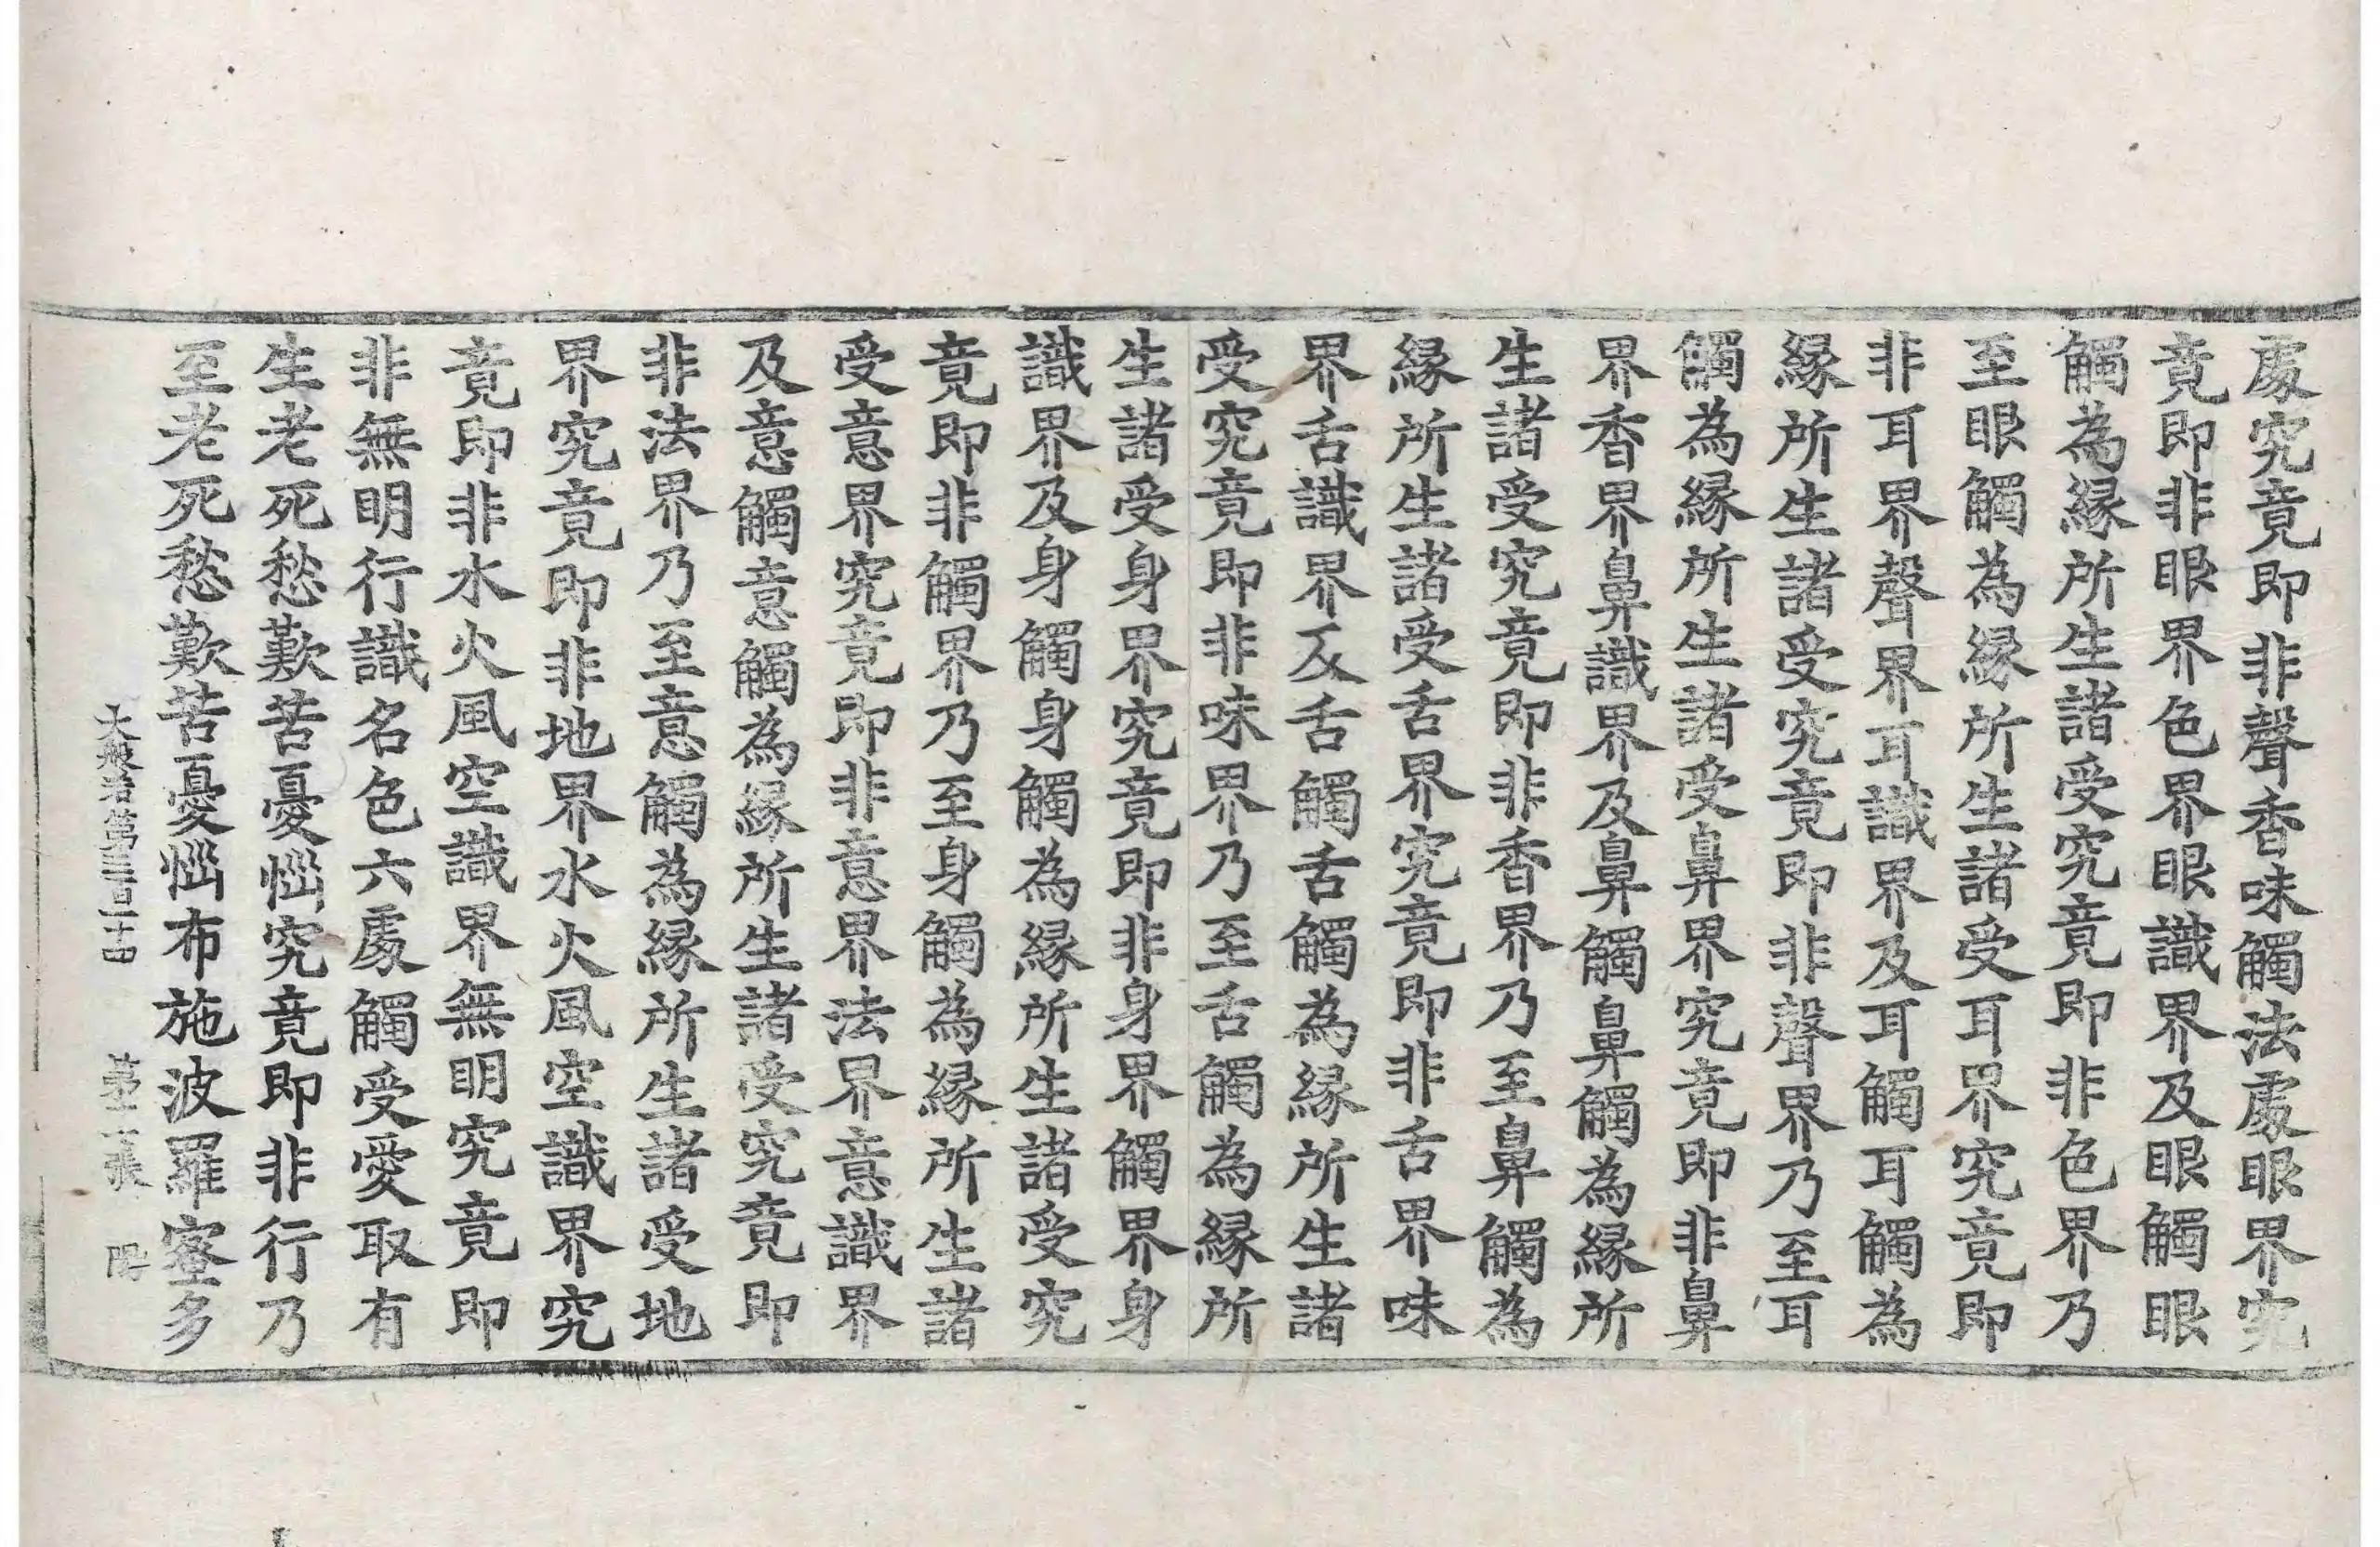 處究竟即非聲香味觸法處眼界究
竟即非眼界色界眼識界及眼觸眼
觸為緣所生諸受究竟即非色界乃
至眼觸為緣所生諸受耳界究竟即
非耳界聲界耳識界及耳觸耳觸為
緣所生諸受究竟即非聲界乃至耳
觸為緣所生諸受鼻界究竟即非鼻
界香界鼻識界及鼻觸鼻觸為緣所
生諸受究竟即非香界乃至鼻觸為
緣所生諸受舌界究竟即非舌界味
界舌識界及舌觸舌觸為緣所生諸
受究竟即非味界乃至舌觸為緣所
生諸受身界究竟即非身界觸界身
識界及身觸身觸為緣所生諸受究
竟即非觸界乃至身觸為緣所生諸
受意界究竟即非意界法界意識界
及意觸意觸為緣所生諸受究竟即
非法界乃至意觸為緣所生諸受地
界究竟即非地界水火風空識界究
竟即非水火風空識界無明究竟即
非無明行識名色六處觸受愛取有
生老死愁歎苦憂惱究竟即非行乃
至老死愁歎苦憂惱布施波羅蜜多
大般若第三百二十四 第二張